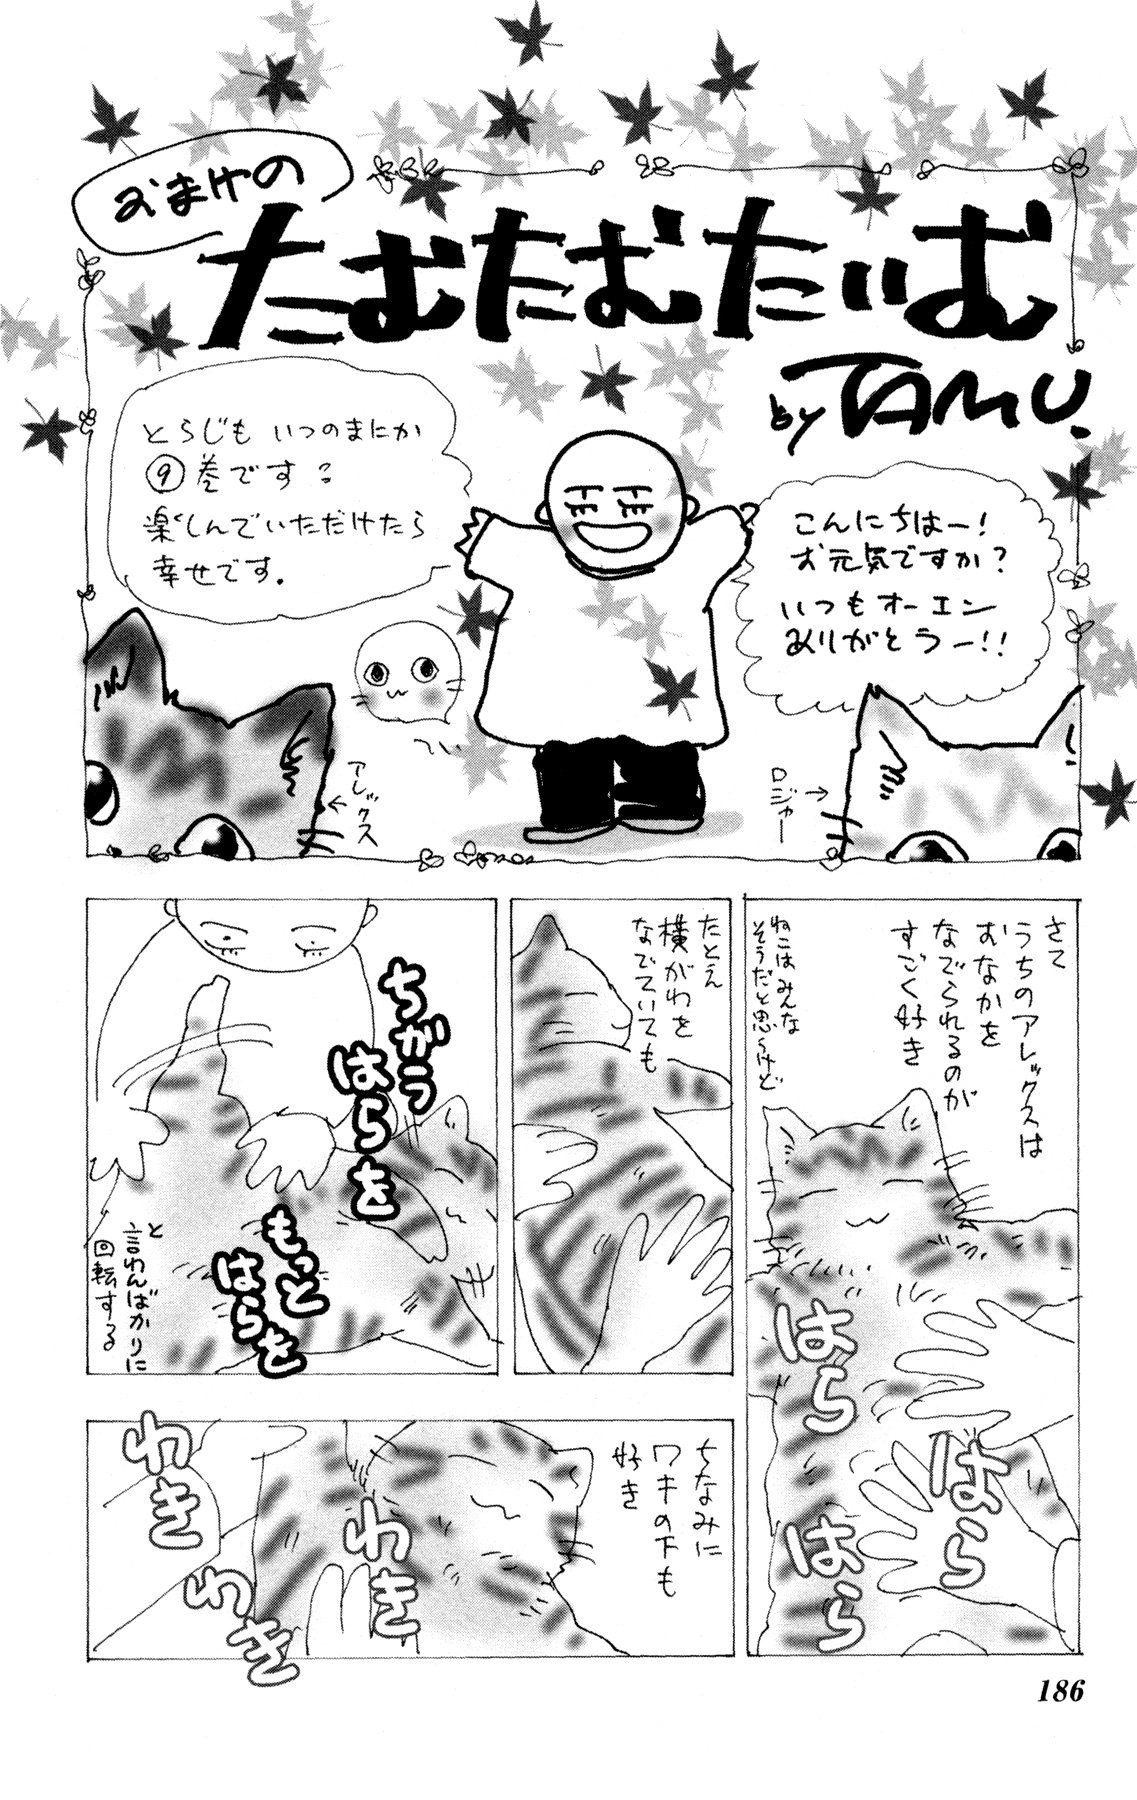 おまけの
たむたむたいむ
by TAMU.
こんにちはー!
お元気ですか?
いつもオーエン
ありがとうー!!
とらじも いつのまにか
⑨巻です?
楽しんでいただけたら
幸せです。
てい
アレックス
ロジャー
さて
うちのアレックスは
おなかを
なでられるのが
すごく好き
ねこはみんな
そうだと思うけど
はら
はら
はら
たとえ
横がわを
なでていても
ちがう
はらを
もっと
はらを
と
言わんばかりに
回転する
ちなみに
ワキの下も
好き
わき
わき
わき
186